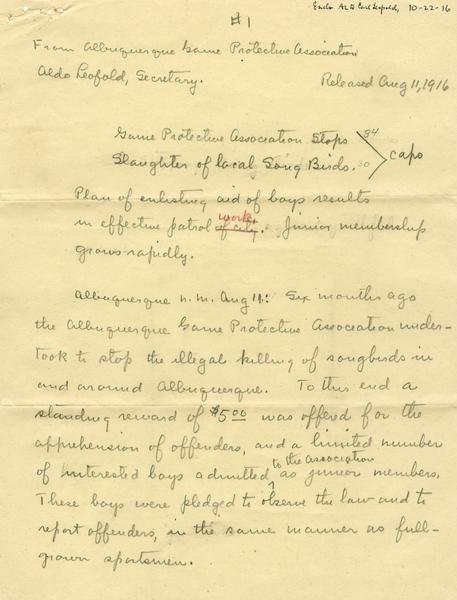 Enclo AL to Carl Leopold, 10-22-16
#1
From Albuquerque Game Protective Association
Aldo Leopold, Secretary.
Released Aug 11, 1916
Game Protective Association Stops 34
Slaughter of local Song Birds. 30
caps
Plan of enlisting aid of boys results
work.
in effective patrol of city. Junior membership
grows rapidly.
Albuquerque N.M. Aug 11: Six months ago
the Albuquerque Game Protective Association under-
took to stop the illegal killing of songbirds in
and around Albuquerque. To this end a
standing reward of $5.00 was offered for the
apprehension of offenders, and a limited number
to the association
of interested boys admitted as junior members.
These boys were pledged to observe the law and to
report offenders, in the same manner as full-
grown sportsmen.